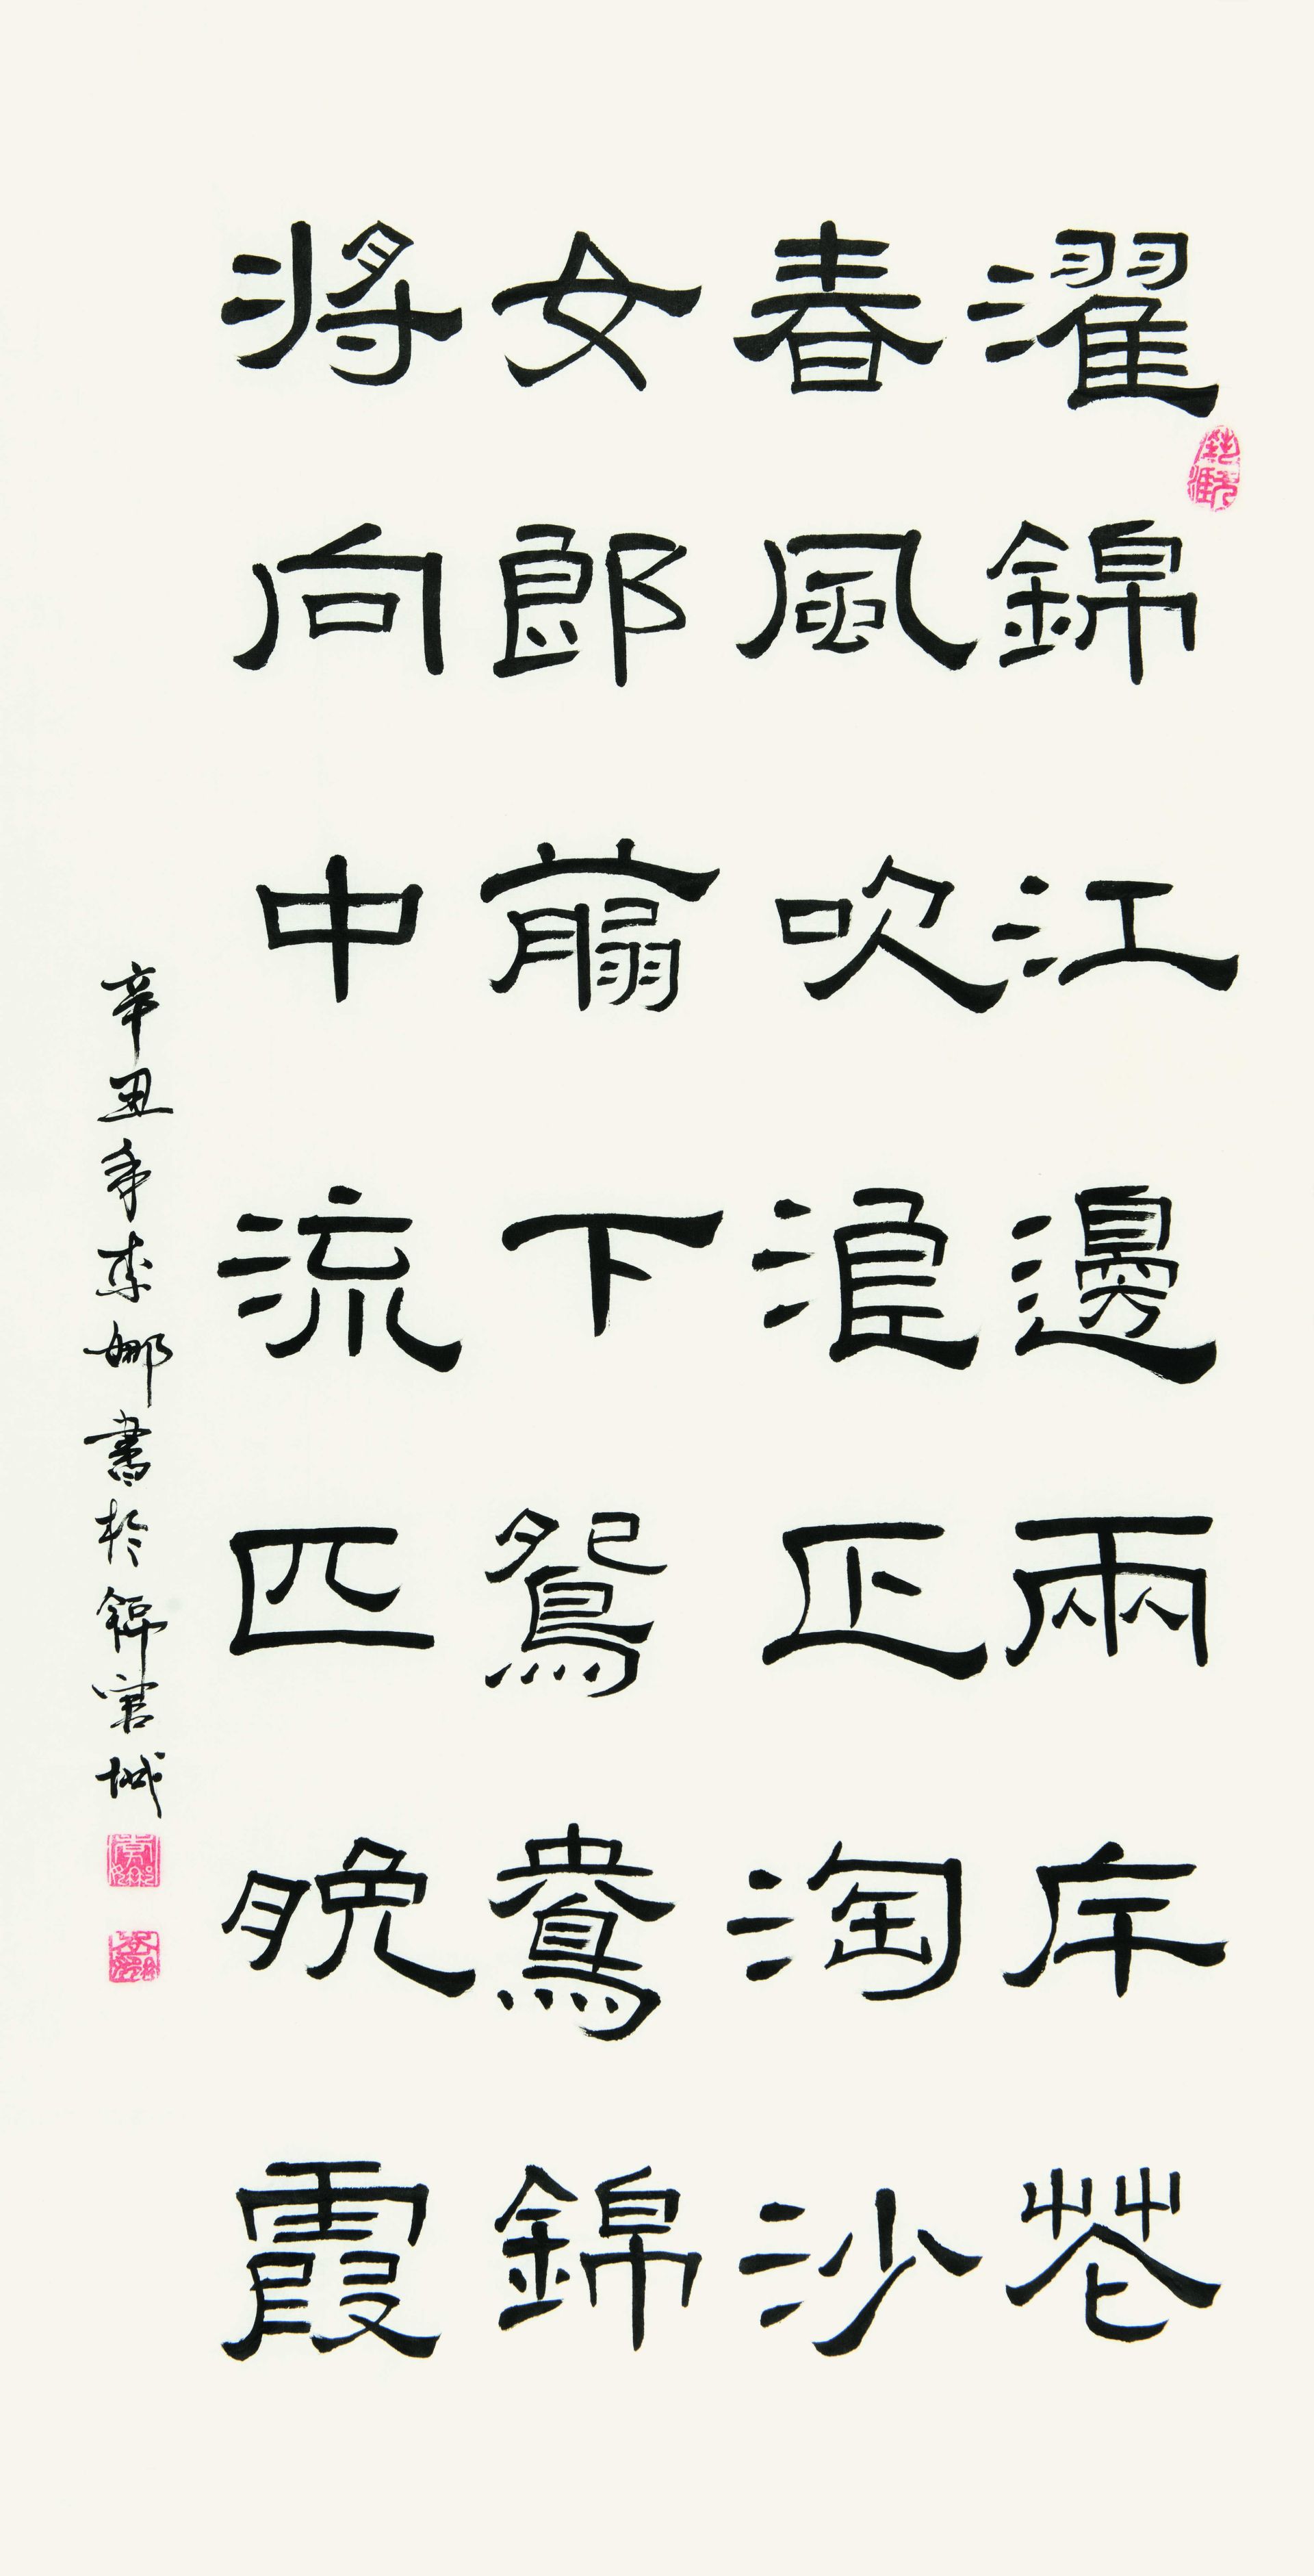 濯錦江邊兩岸花
春風吹浪正淘沙
女郎翦下鴛鴦錦
將向中流匹晚霞
辛丑年李娜書於錦官城